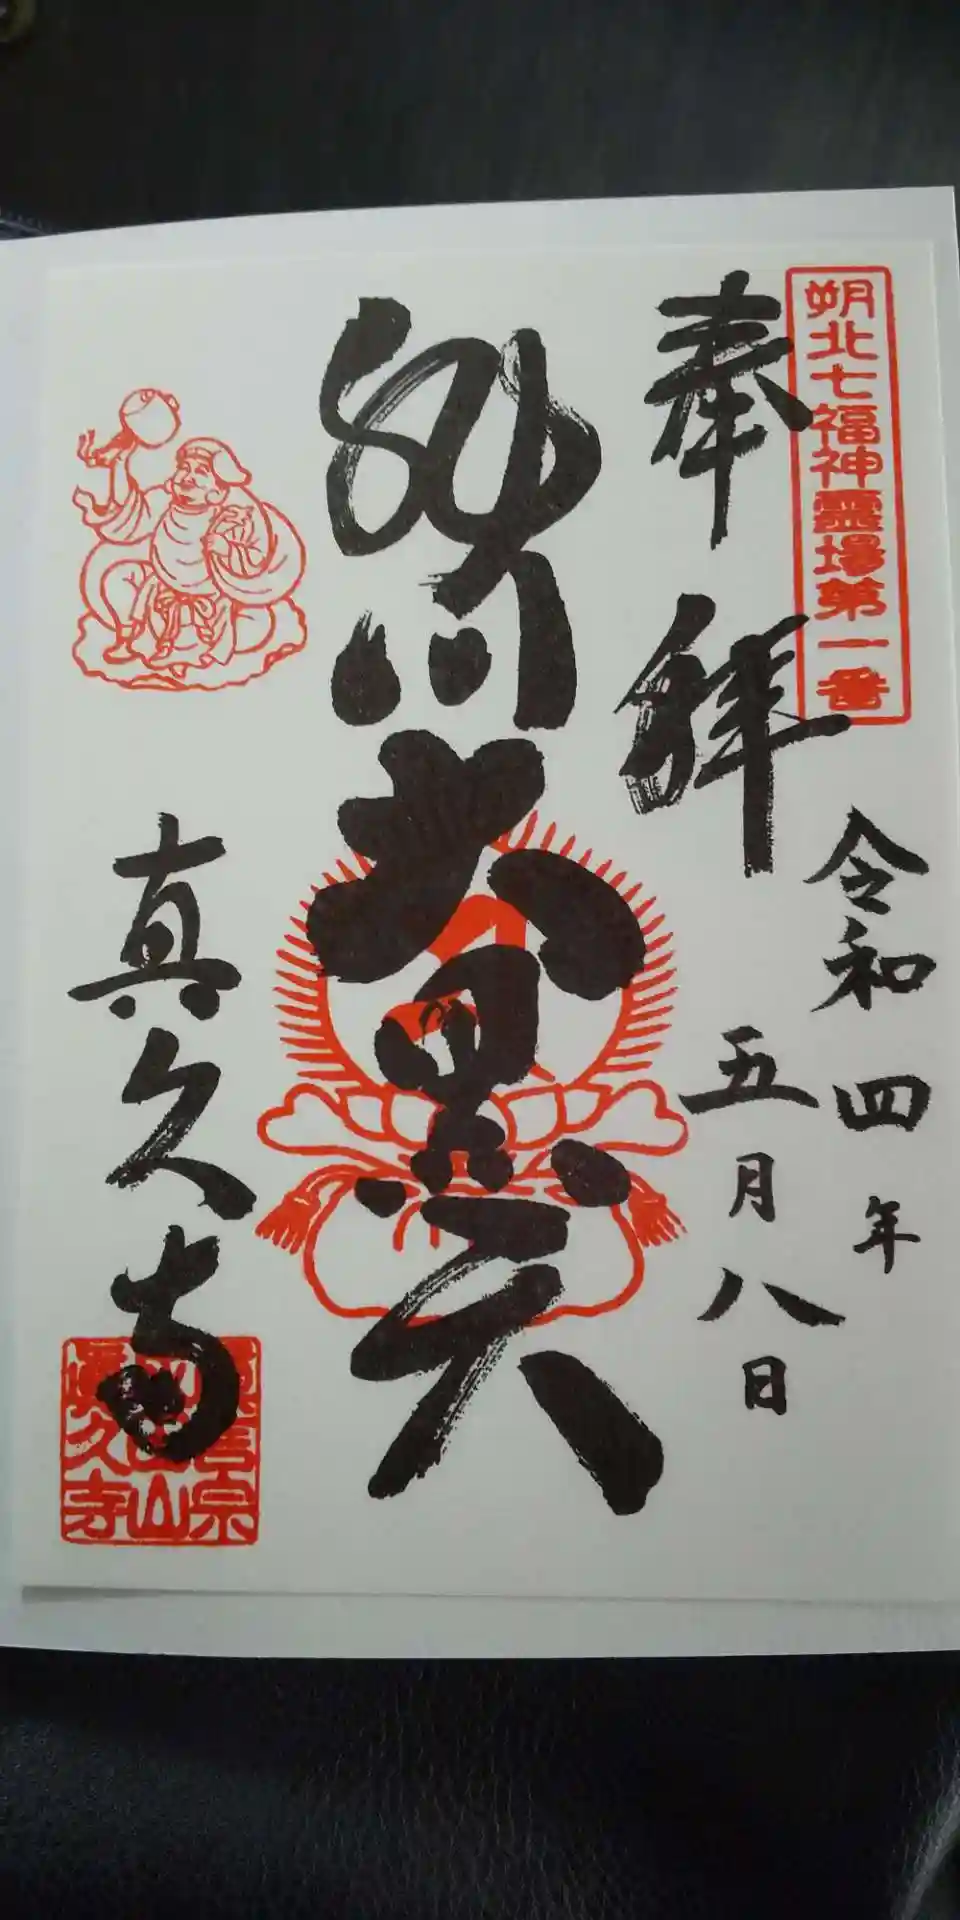 朔北七福神霊場第一番
奉拝
令和四年
五月八日
大黒天
真久寺
真言宗
山
眞久寺